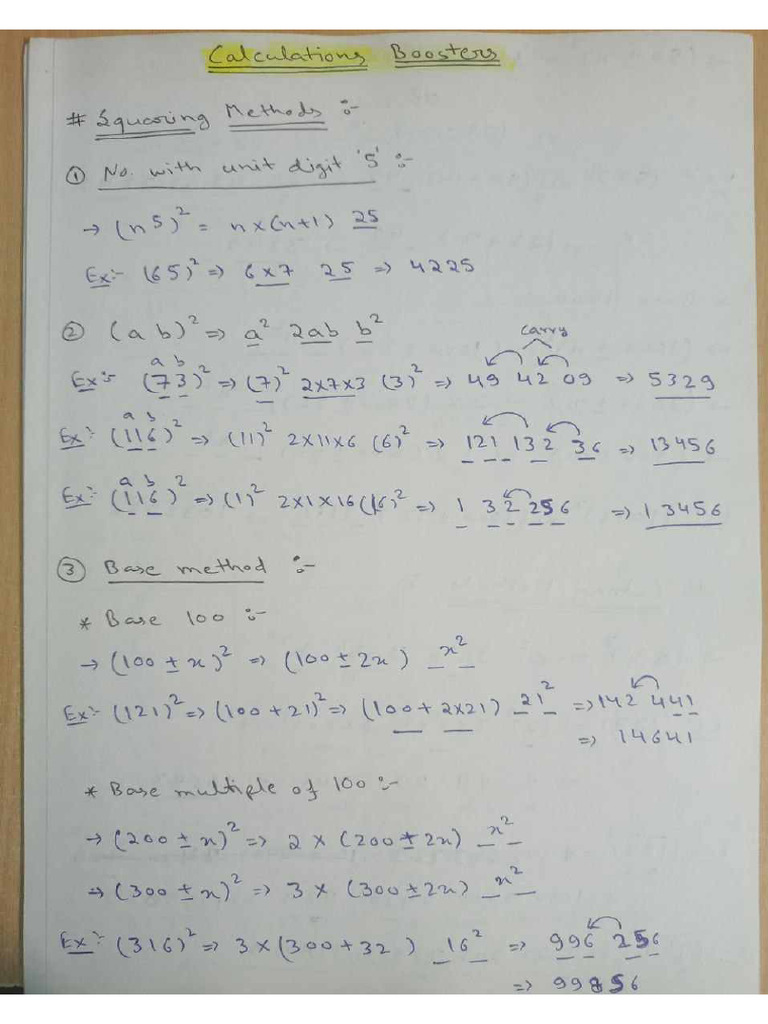 Calculations Boosters
# Squaring Methods :-
① No. with unit digit '5' :-
→ (n5)² = n×(n+1) 25
Ex:- (65)² ⇒ 6×7 25 ⇒ 4225
② (ab)² ⇒ a² 2ab b²
carry
a b
Ex:- (73)² ⇒ (7)² 2×7×3 (3)² ⇒ 49 42 09 ⇒ 5329
a b
Ex:- (116)² ⇒ (11)² 2×11×6 (6)² ⇒ 121 132 36 ⇒ 13456
a b
Ex:- (116)² ⇒ (1)² 2×1×16 (16)² ⇒ 1 32 256 ⇒ 13456
③ Base method :-
* Base 100 :-
→ (100 ± x)² ⇒ (100 ± 2x) x²
Ex:- (121)² ⇒ (100+21)² ⇒ (100 + 2×21) 21² ⇒ 142 441
⇒ 14641
* Base multiple of 100 :-
→ (200 ± x)² ⇒ 2 × (200 ± 2x) x²
→ (300 ± x)² ⇒ 3 × (300 ± 2x) x²
Ex:- (316)² ⇒ 3×(300+32) 16² ⇒ 996 256
⇒ 99856